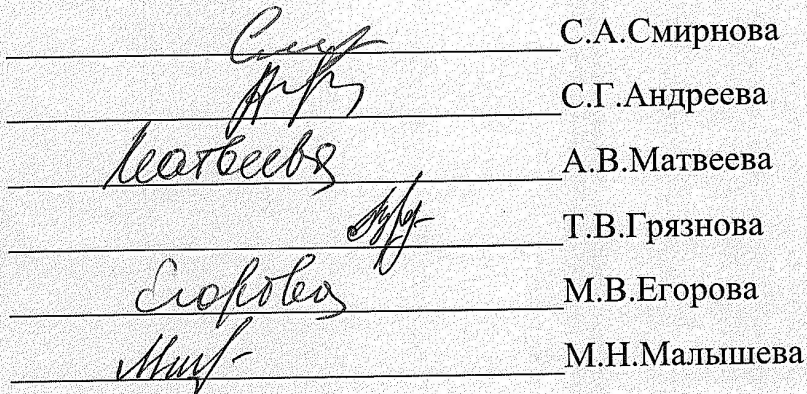 С.А.Смирнова
С.Г.Андреева
Матвеева А.В.Матвеева
Т.В.Грязнова
Егорова М.В.Егорова
М.Н.Малышева